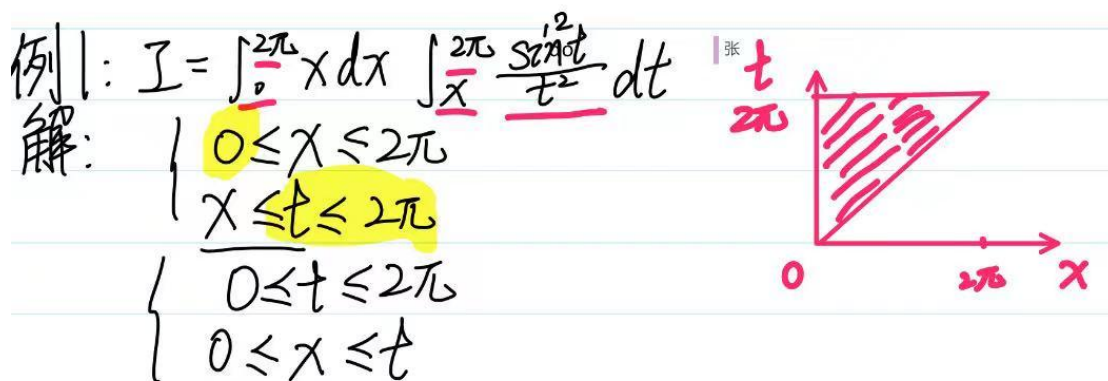 例1: I = ∫₀^{2π} x dx ∫ₓ^{2π} sin²t/t² dt
解:
{ 0 ≤ x ≤ 2π
x ≤ t ≤ 2π
{ 0 ≤ t ≤ 2π
0 ≤ x ≤ t
张
t
2π
0
2π
x